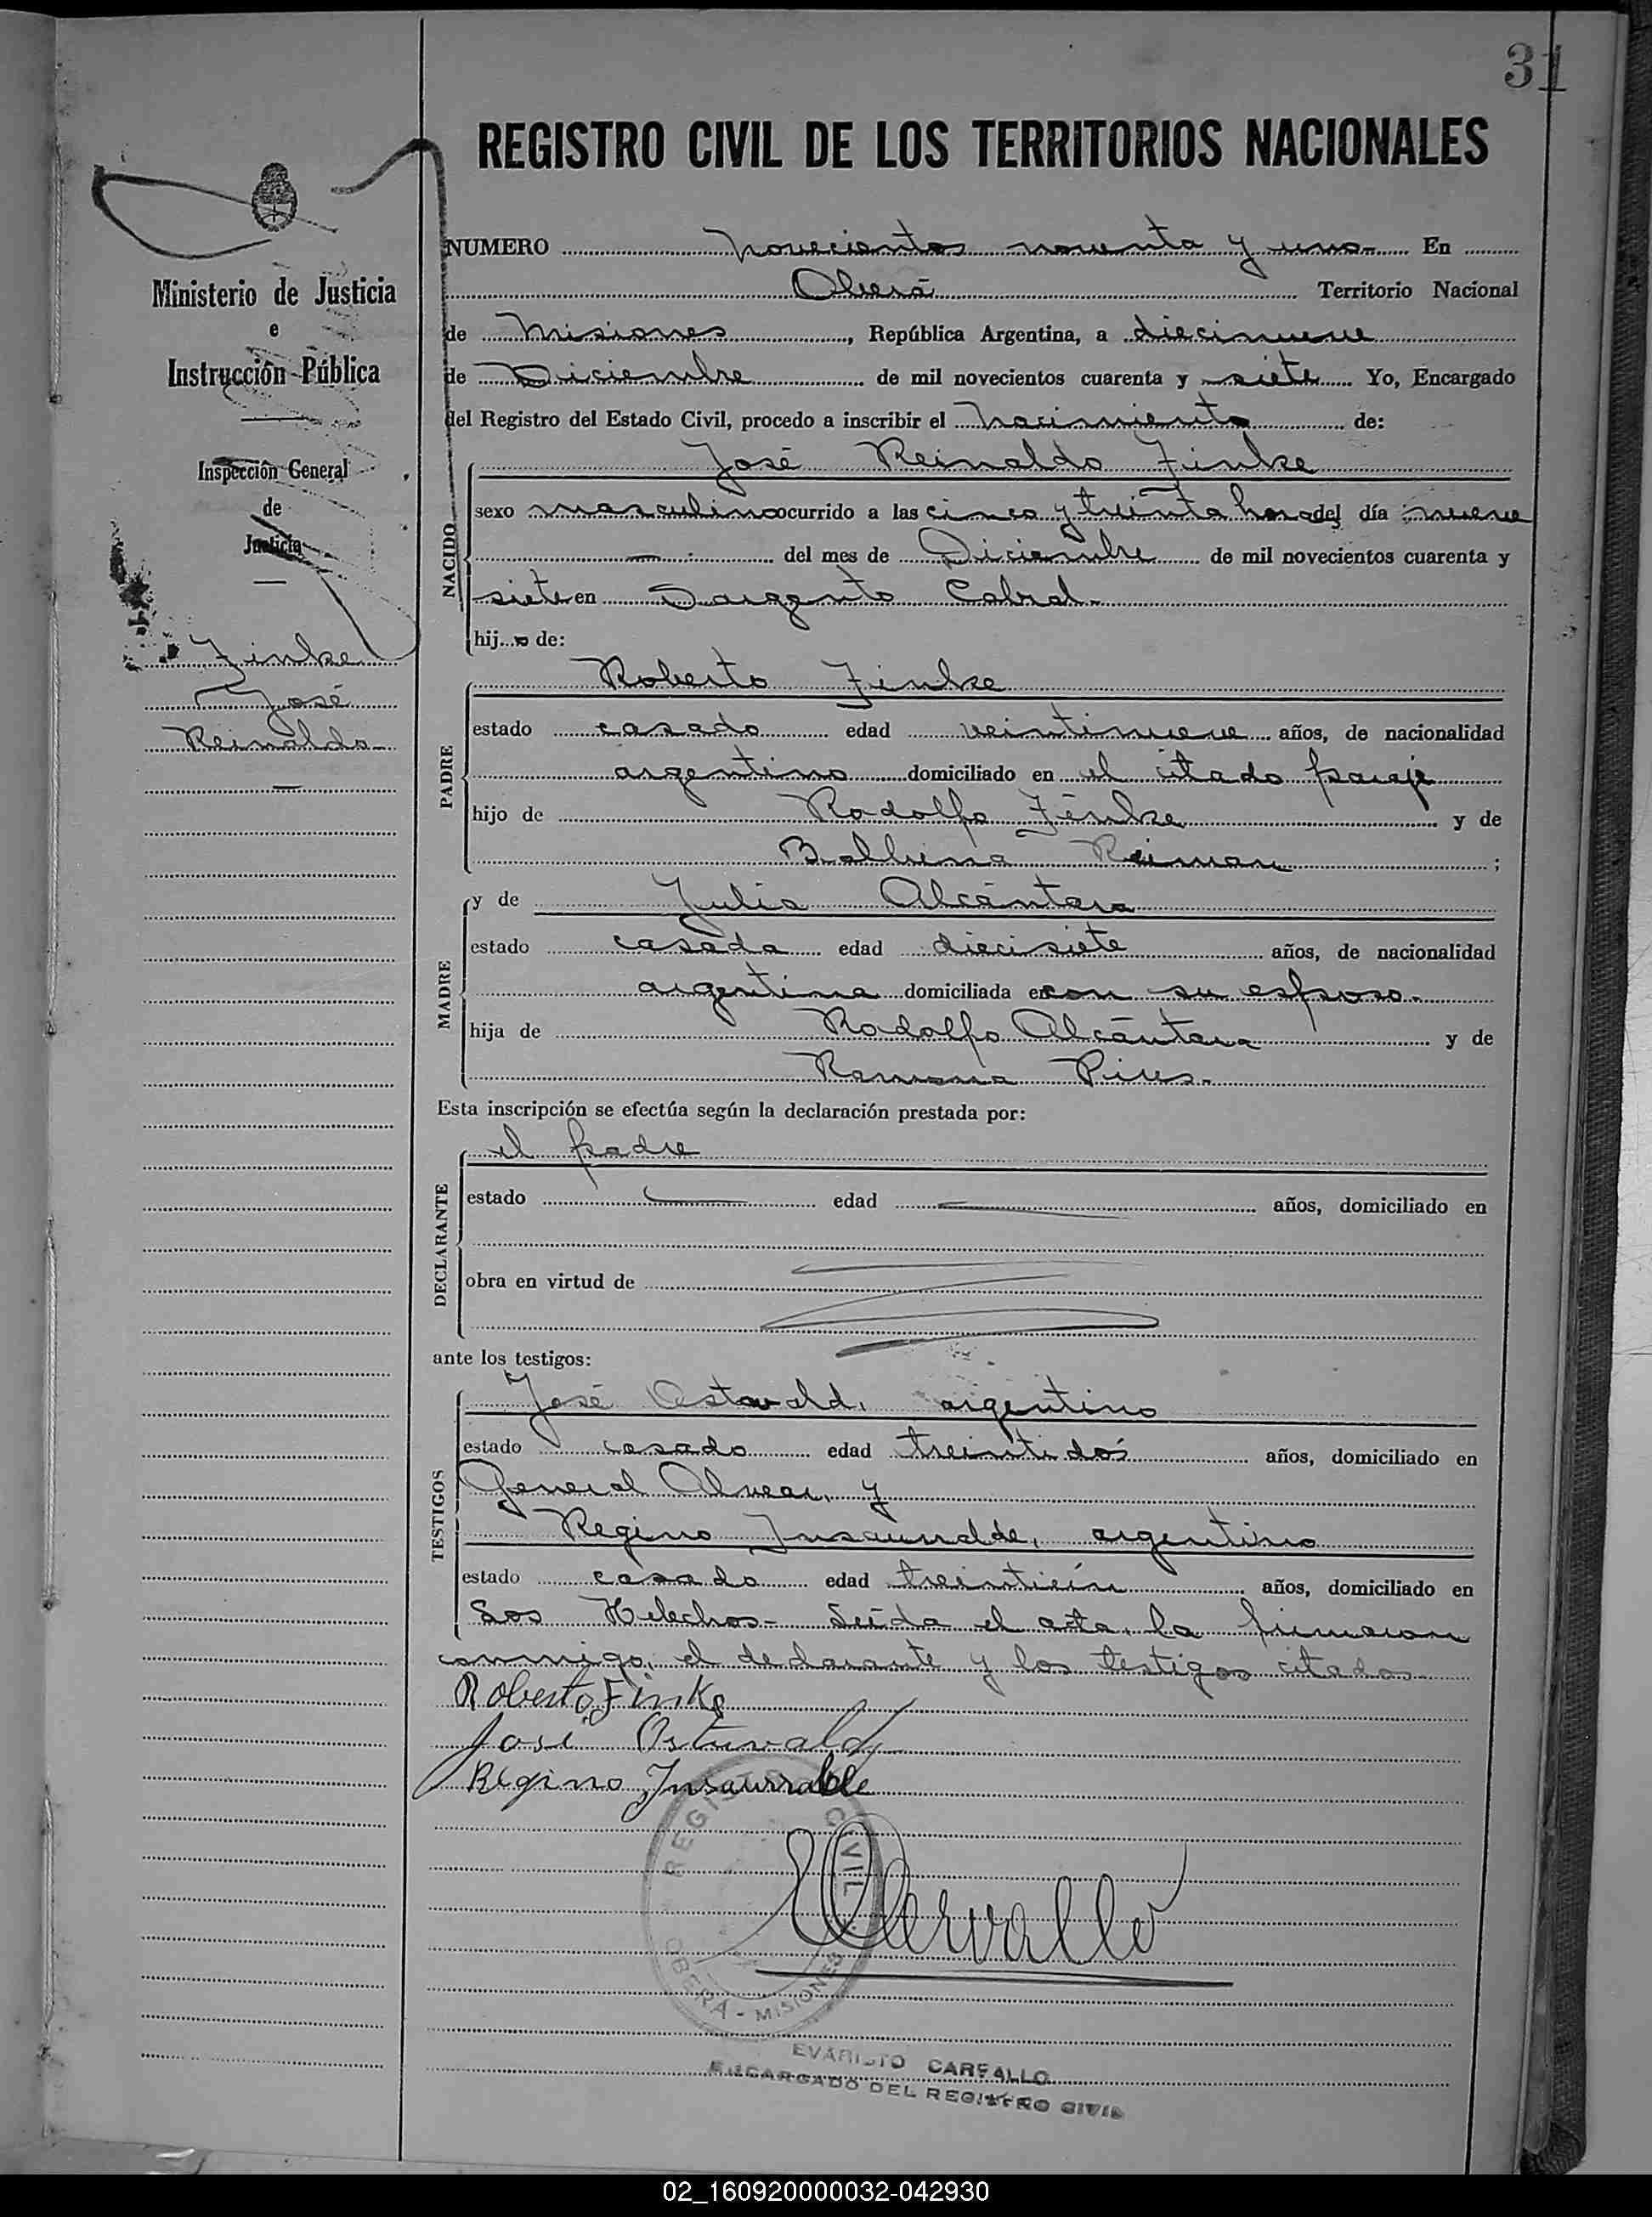 31
REGISTRO CIVIL DE LOS TERRITORIOS NACIONALES
Ministerio de Justicia
e
Instrucción Pública
Inspección General
de
Justicia
Finke
José
Reinaldo
NUMERO novecientos noventa y uno En
Oberá Territorio Nacional
de Misiones, República Argentina, a diecinueve
de Diciembre de mil novecientos cuarenta y siete Yo, Encargado
del Registro del Estado Civil, procedo a inscribir el nacimiento de:
NACIDO
José Reinaldo Finke
sexo masculino ocurrido a las cinco y treinta horas del día nueve
del mes de Diciembre de mil novecientos cuarenta y
siete en Sargento Cabral.
hijo de:
PADRE
Roberto Finke
estado casado edad veintinueve años, de nacionalidad
argentino domiciliado en el citado paraje
hijo de Rodolfo Finke y de
Balbina Reiman;
MADRE
y de Julia Alcántara
estado casada edad diecisiete años, de nacionalidad
argentina domiciliada en con su esposo.
hija de Rodolfo Alcántara y de
Ramona Pires.
Esta inscripción se efectúa según la declaración prestada por:
DECLARANTE
el padre
estado edad años, domiciliado en
obra en virtud de
ante los testigos:
TESTIGOS
José Ostwald, argentino
estado casado edad treintidós años, domiciliado en
General Alvear, y
Regino Insaurralde, argentino
estado casado edad treintiún años, domiciliado en
Los Helechos- Leída el acta, la firmaron
conmigo, el declarante y los testigos citados.
Roberto Finke
José Ostuvald
Regino Insaurralde
REGISTRO CIVIL
OBERÁ - MISIONES
ECarvallo
EVARISTO CARVALLO
ENCARGADO DEL REGISTRO CIVIL
02_160920000032-042930